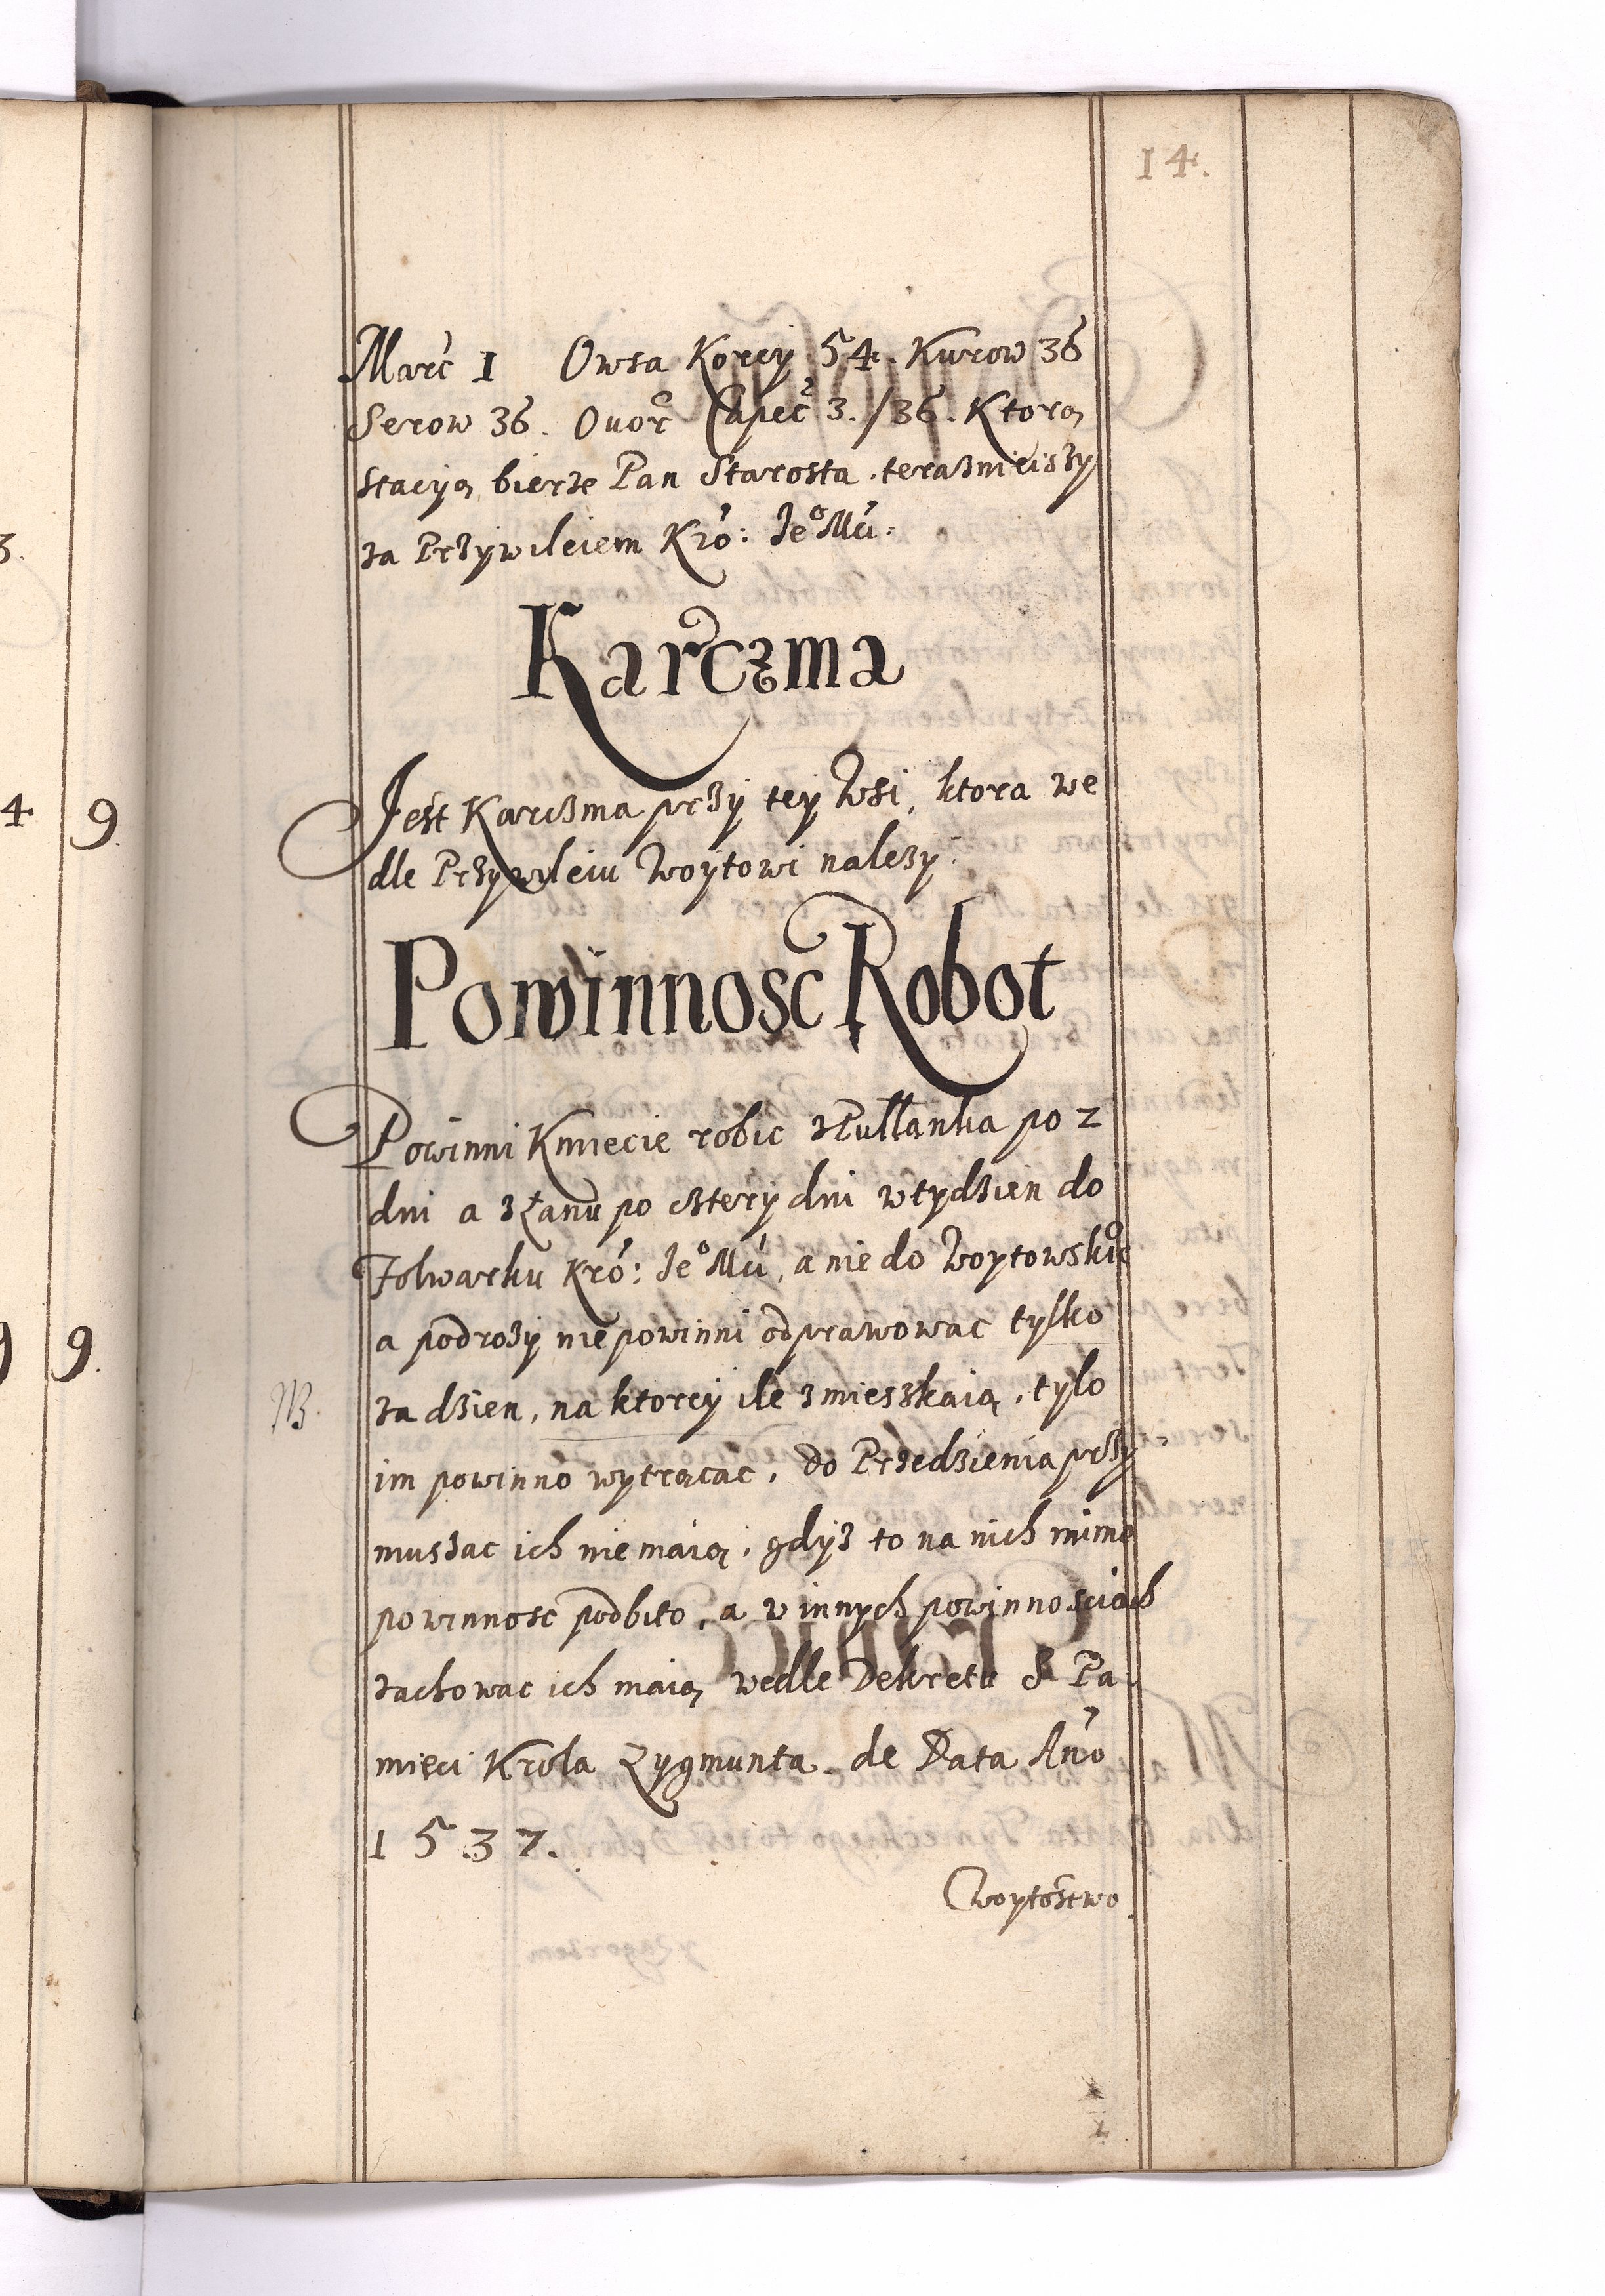 14.
Marc 1 Owsa Korcy 54. Kurow 36
Serow 36. Ouor Capec 3./36. Ktorą
stacyią bierze Pan Starosta terazniejszy
za Przywileiem Kro: JeoMci:
Karczma
Jest Karczma przy tey Wsi, ktora we
dle Przywileiu Woytowi nalezy.
Powinnosc Robot
Powinni Kmiecie robic z Pułłanka po 2
dni a z Łanu po cztery dni w tydzien do
Folwarku Kro: Jeo Mci, a nie do Woytowskic
a podrozy nie powinni odprawowac tylko
NB. za dzien, na ktorey ile zmieszkaią, tylo
im powinno wytrącac, do Przedzienia przy
muszac ich nie maią, gdyz to na nich mimo
powinnosc podbito, a w innych powinnosciach
zachowac ich maią wedle Dekretu S. Pa
mięci Krola Zygmunta de Data Ano
1537.
Woytostwo
4 9.
9.
3.